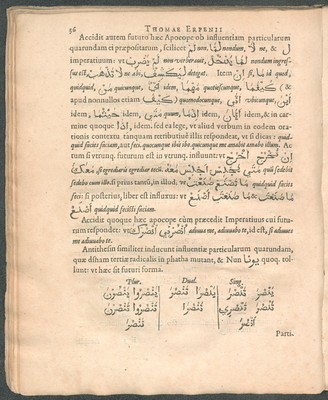 96 THOMAE ERPENII
Accidit autem futuro hæc Apocope ob influentiam particularum
quarundam ei præpositarum, scilicet لَمْ non, لَمَّا nondum, لا ne, & لِ
imperatiuum: vt لَمْ يَضْرِبْ non verberauit, لَمَّا يَدْخُلْ nondum ingres-
sus est, لا تَذْهَبْ ne abi, لِيَكْشِفْ detegat. Item إِنْ si, مَا id quod,
quidquid, مَنْ quicunque, idem, مَهْمَا quotiescunque, كَيْفَمَا (&
apud nonnullos etiam كَيْفَ) quomodocunque, أَيْنَ vbicunque,
حَيْثُمَا idem, مَتَى quum, idem, idem, & in car-
mine quoque إِذَا, idem, sed ea lege, vt aliud verbum in eodem ora-
tionis contextu tanquam retributiuè illi respondeat, vt si dicas: quid-
quid facies faciam, aut feci. quocunque ibis ibo. quicunque me amabit amabo illum. Ac
tum si vtrunq. futurum est in vtrunq. influunt: vt إِنْ تَخْرُجْ أَخْرُجْ
si egrediaris egrediar tecum. quà sedebis
sedebo cum illo. si prius tantùm, in illud, vt مَا تَصْنَعْ صَنَعْتُ quidquid facies
feci: si posterius, liber est influxus: vt مَا صَنَعْتَ أَصْنَعُ & مَا صَنَعْتَ
أَصْنَعْ quidquid fecisti faciam.
Accidit quoque hæc apocope cùm præcedit Imperatiuus cui futu-
rum respondet: vt أُنْصُرْنِي أَنْصُرْكَ adiuua me, adiuuabo te, id est, si adiuues
me adiuuabo te.
Antithesin similiter inducunt influentiæ particularum quarundam,
quæ damam tertiæ radicalis in phatha mutant, & Nun quoq. tol-
lunt: vt hæc sit futuri forma.
Plur. Dual. Sing.
يَنْصُرُوا يَنْصُرْنَ يَنْصُرَا تَنْصُرَا يَنْصُرَ تَنْصُرَ
تَنْصُرُوا تَنْصُرْنَ تَنْصُرَا تَنْصُرَ تَنْصُرِي
نَنْصُرَ أَنْصُرَ
Parti.